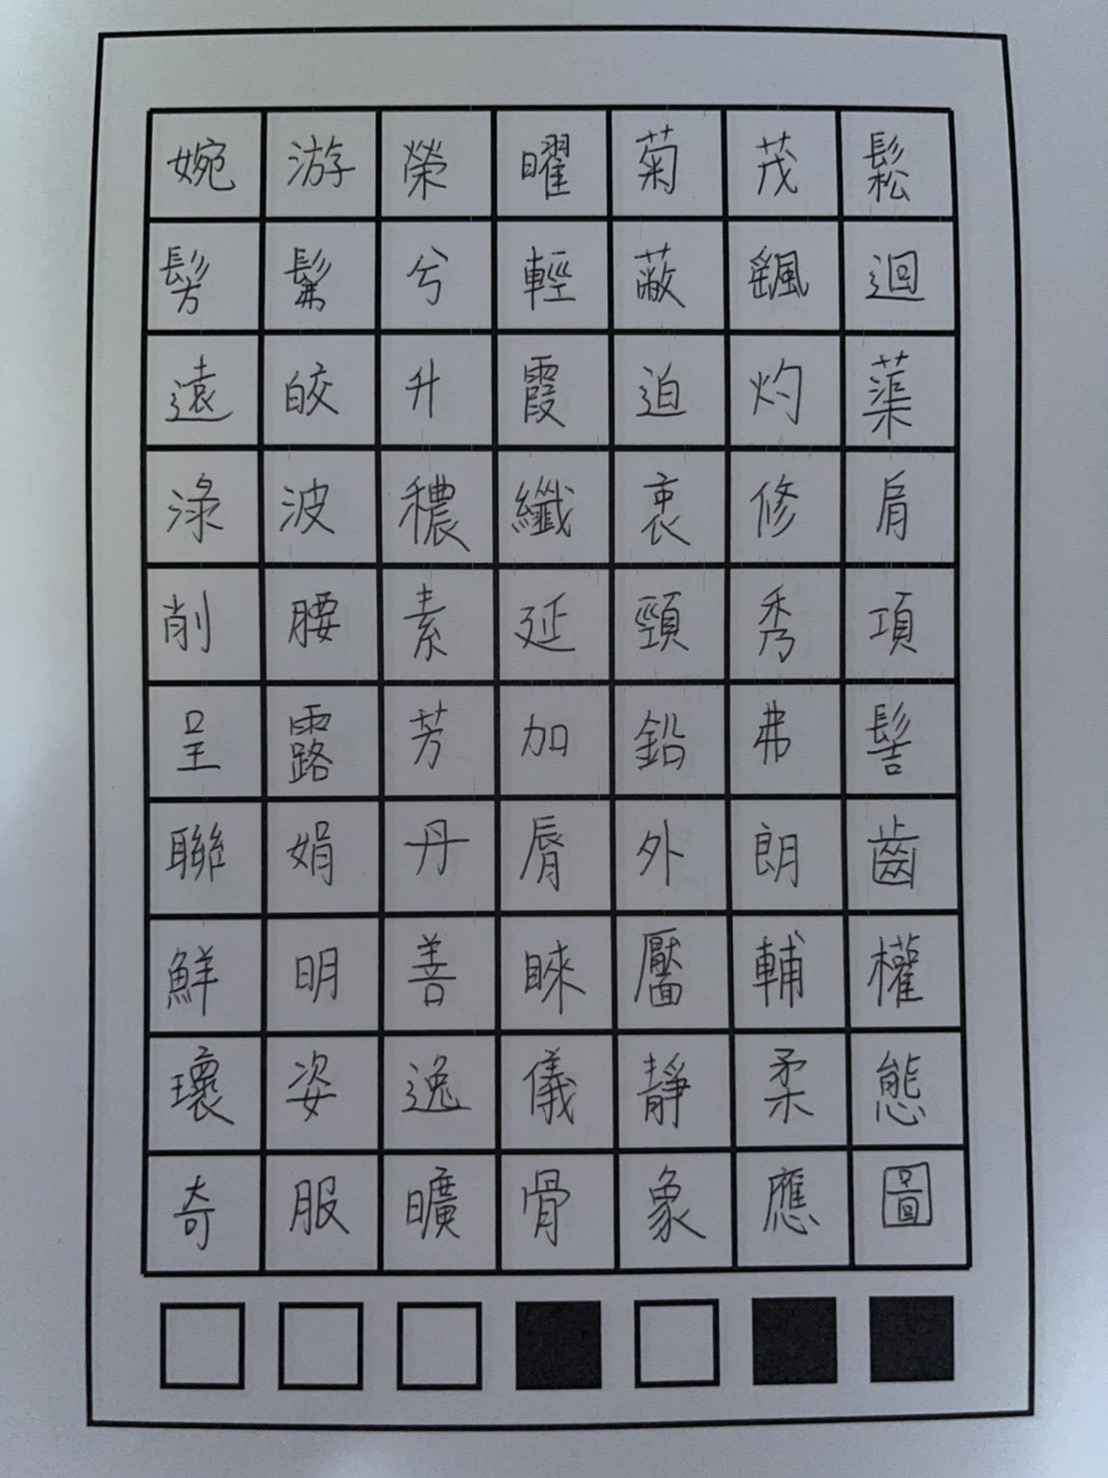 婉游榮曜菊茂鬆
髣髴兮輕蔽飆迴
遠皎升霞迫灼蕖
淥波穠纖衷修肩
削腰素延頸秀項
呈露芳加鉛弗髻
聯娟丹脣外朗齒
鮮明善睞靨輔權
瓌姿逸儀靜柔態
奇服曠骨象應圖